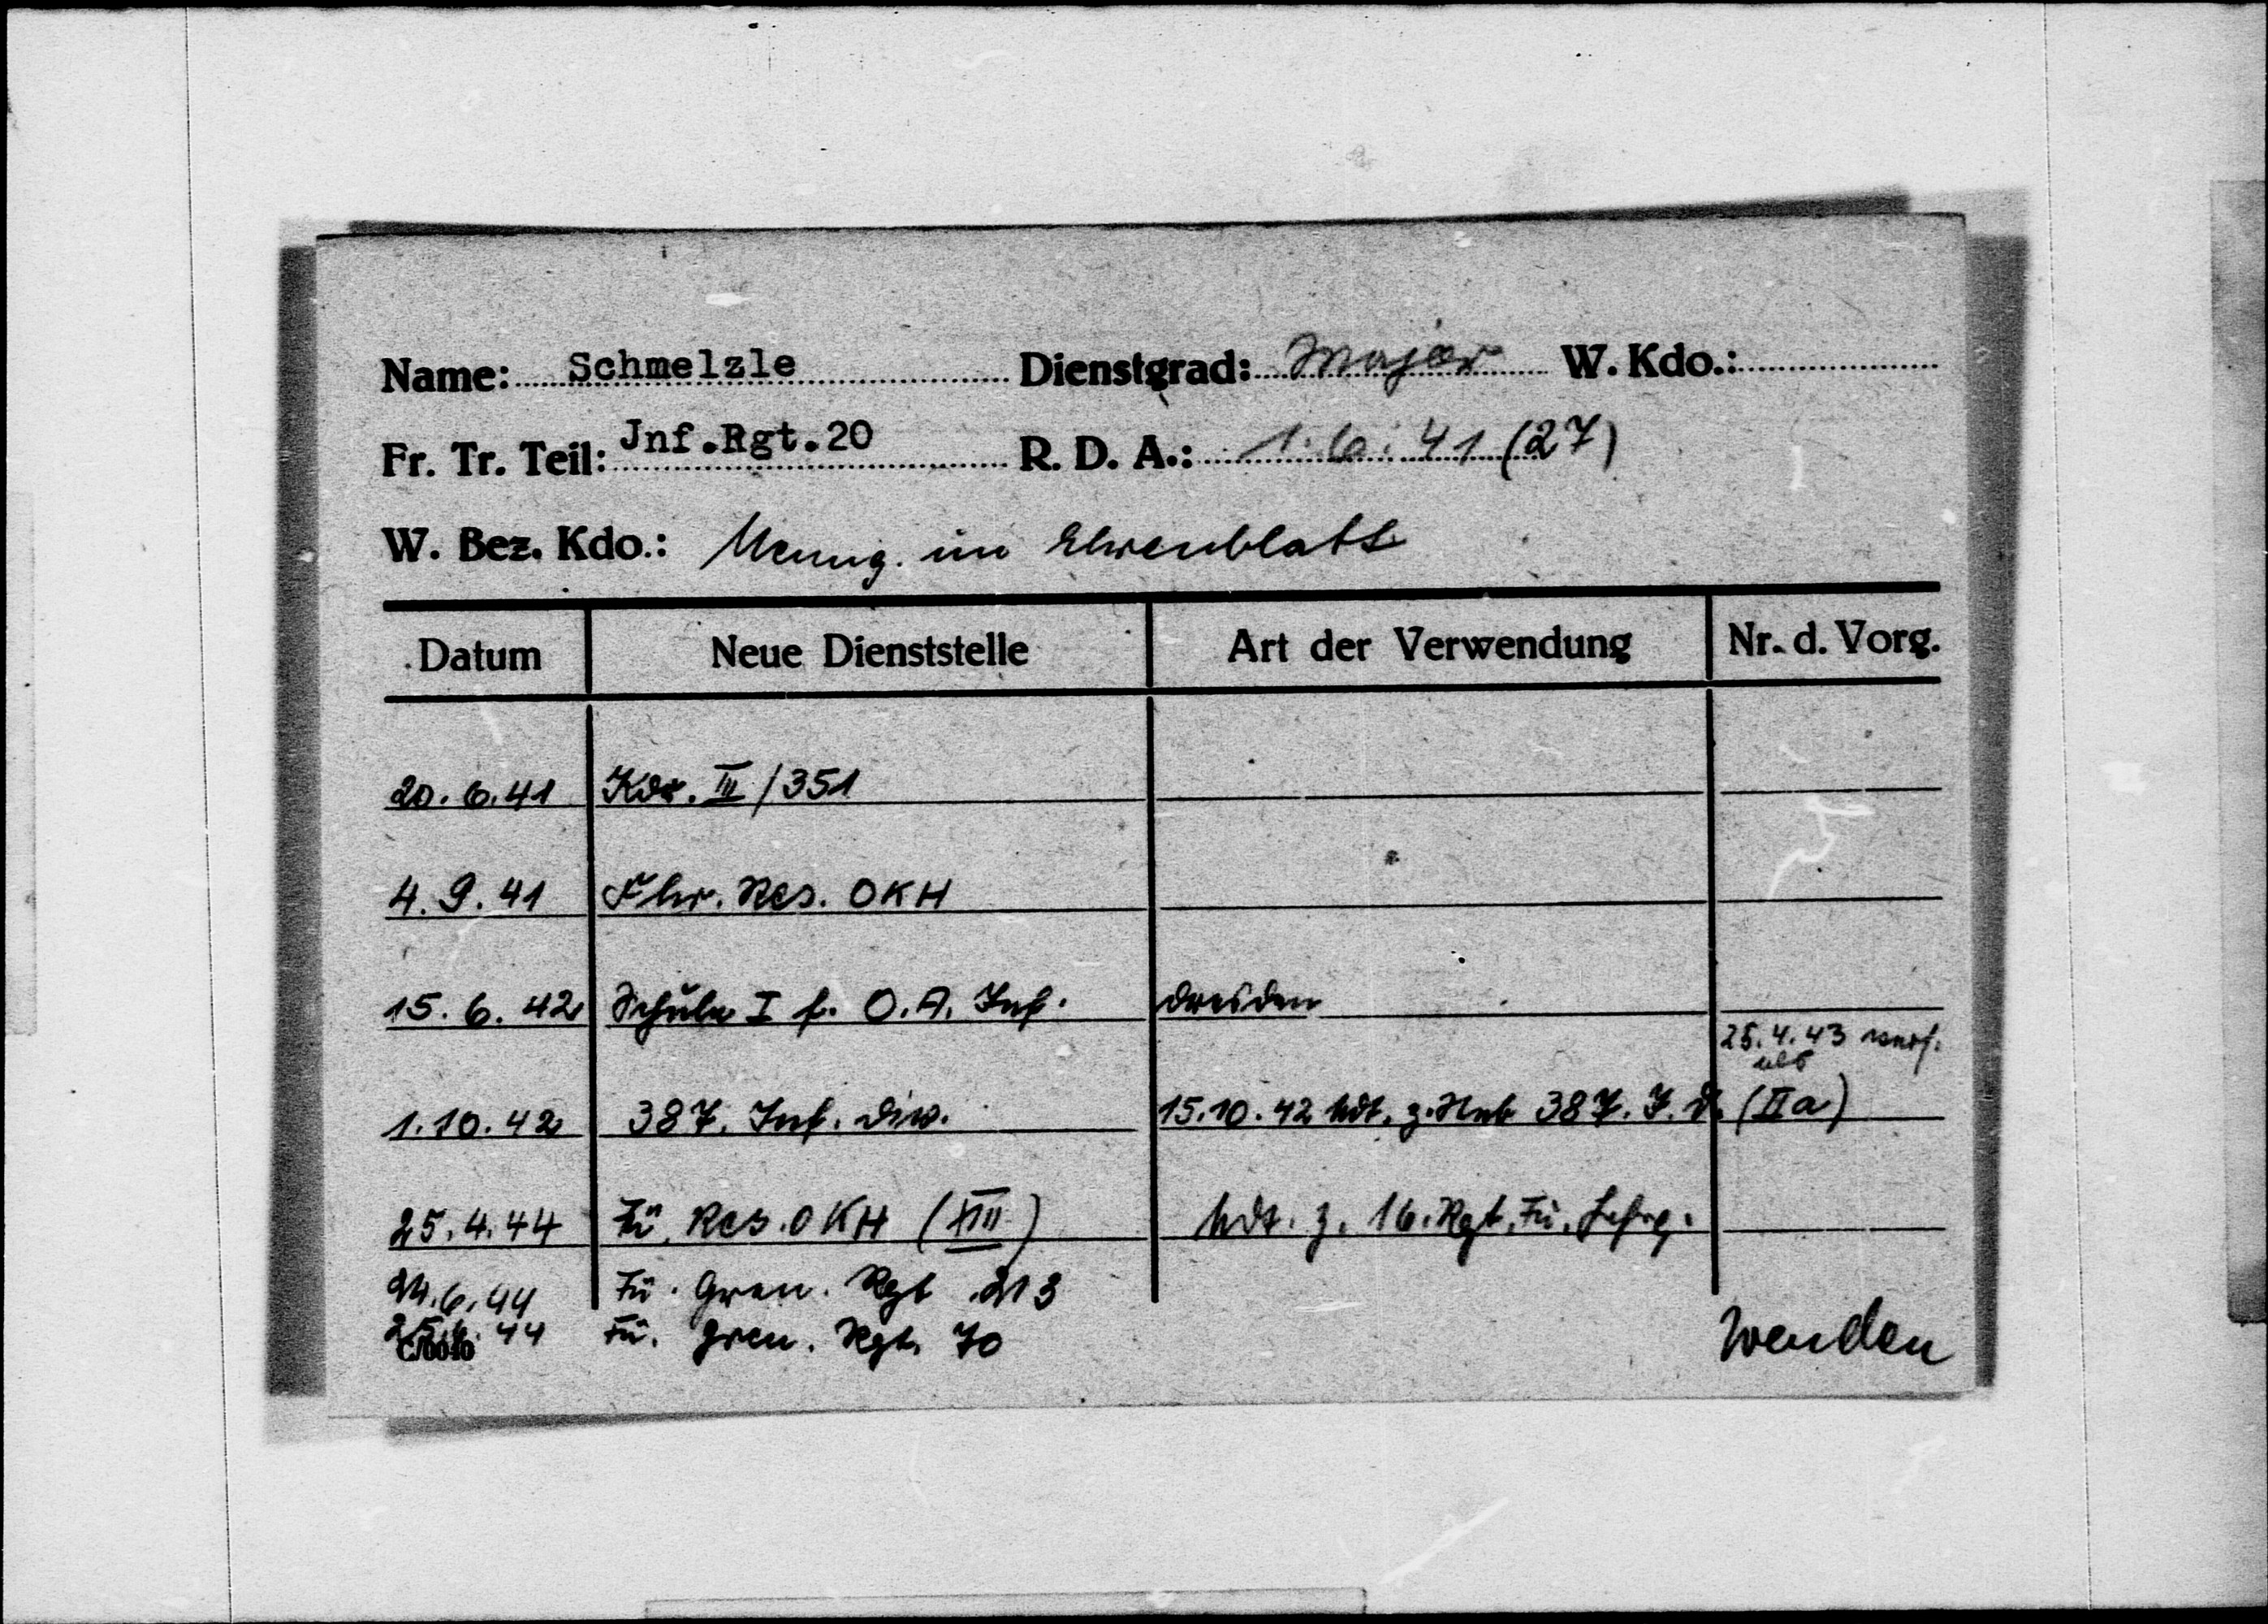 Name: Schmelzle Dienstgrad: Major W. Kdo.:
Fr. Tr. Teil: Jnf.Rgt.20 R. D. A.: 1. 6. 41 (27)
W. Bez. Kdo.: Nenng. im Ehrenblatt
Datum Neue Dienststelle Art der Verwendung Nr. d. Vorg.
20. 6. 41 Kdr. III / 351
4. 9. 41 Fhr. Res. OKH
15. 6. 42 Schule I f. O. A. Inf. Dresden
25. 4. 43
1. 10. 42 387. Inf. Div. 15. 10. 42 kdt. z. Stab 387. I. D. (IIa)
25. 4. 44 Fü. Res. OKH (XIII) kdt. z. 16. Rgt. Fü. Lehrg.
24. 6. 44 Fü. Gren. Rgt. 213
44 Fü. Gren. Rgt. 70
wenden